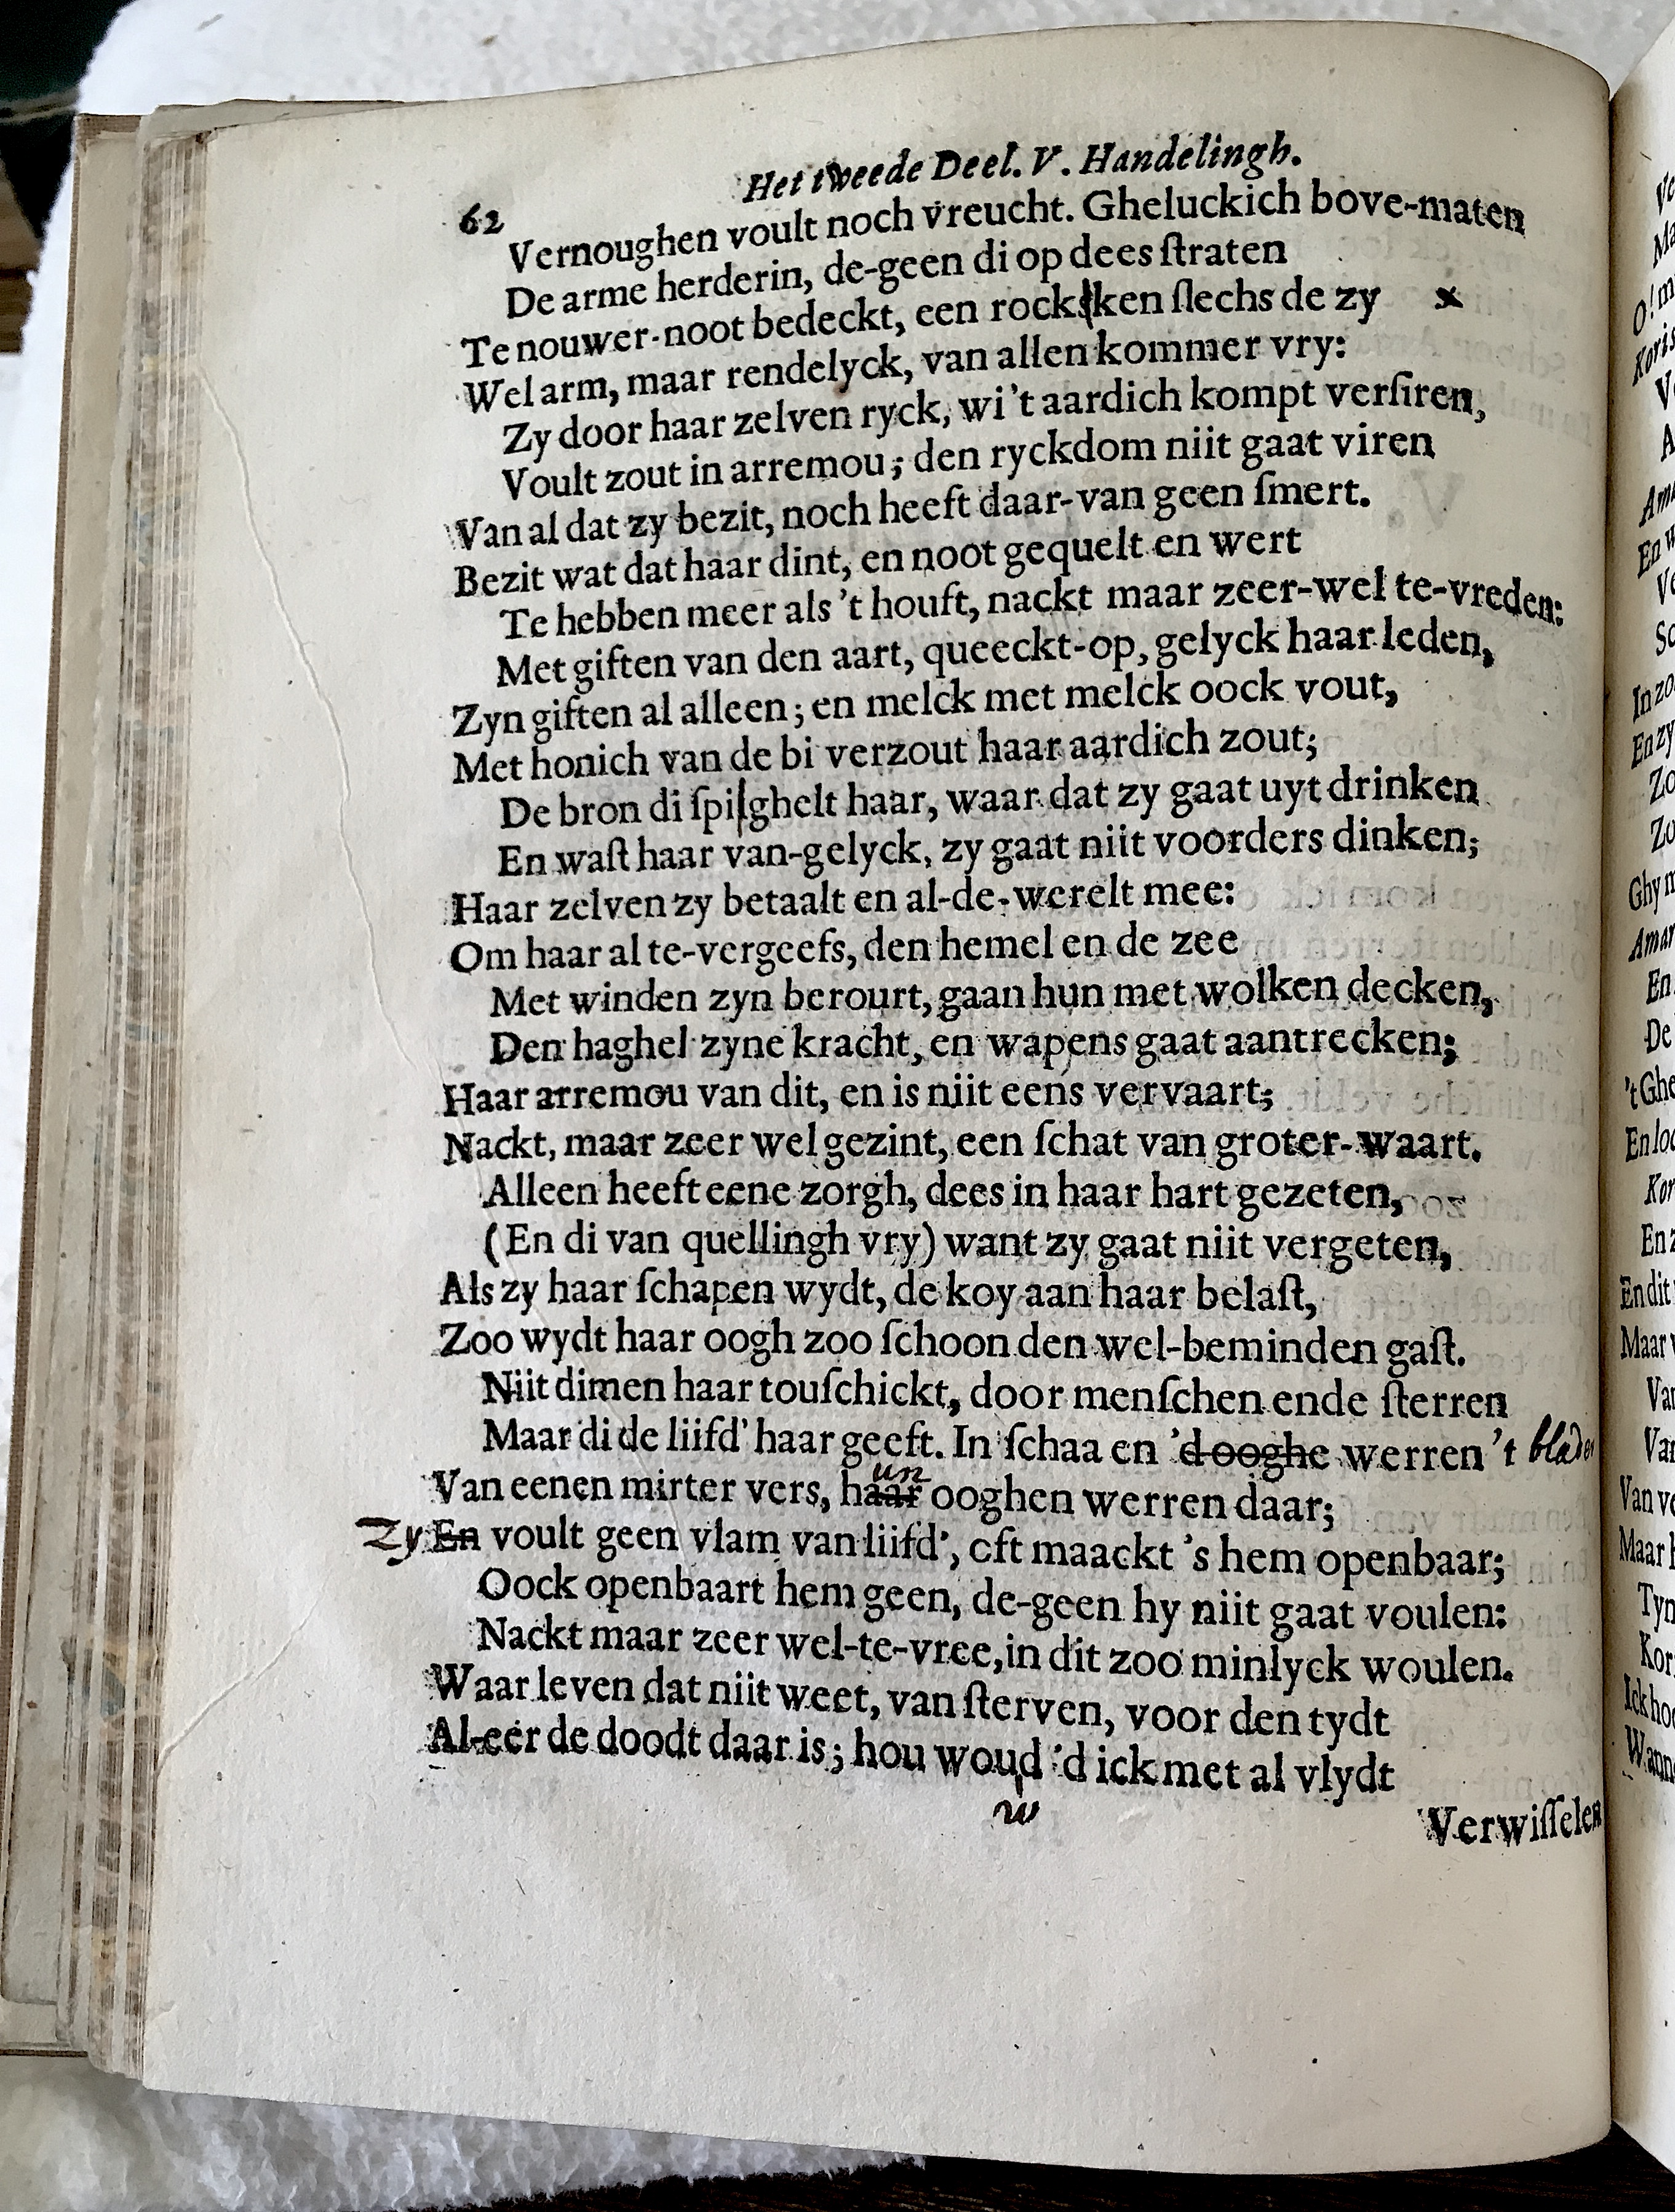 Het tweede Deel. V. Handelingh.
62
Vernoughen voult noch vreucht. Gheluckich bove-maten
De arme herderin, de-geen di op dees ſtraten
Te nouwer-noot bedeckt, een rocksken ſlechs de zy x
Wel arm, maar rendelyck, van allen kommer vry:
Zy door haar zelven ryck, wi't aardich kompt verſiren,
Voult zout in arremou; den ryckdom niit gaat viren
Van al dat zy bezit, noch heeft daar-van geen ſmert.
Bezit wat dat haar dint, en noot gequelt en wert
Te hebben meer als 't houft, nackt maar zeer-wel te-vreden:
Met giften van den aart, queeckt-op, gelyck haar leden,
Zyn giften al alleen; en melck met melck oock vout,
Met honich van de bi verzout haar aardich zout;
De bron di ſpiighelt haar, waar dat zy gaat uyt drinken
En waſt haar van-gelyck, zy gaat niit voorders dinken;
Haar zelven zy betaalt en al-de-werelt mee:
Om haar al te-vergeefs, den hemel en de zee
Met winden zyn berourt, gaan hun met wolken decken,
Den haghel zyne kracht, en wapens gaat aantrecken;
Haar arremou van dit, en is niit eens vervaart;
Nackt, maar zeer wel gezint, een ſchat van groter-waart.
Alleen heeft eene zorgh, dees in haar hart gezeten,
(En di van quellingh vry) want zy gaat niit vergeten,
Als zy haar ſchapen wydt, de koy aan haar belaſt,
Zoo wydt haar oogh zoo ſchoon den wel-beminden gaſt.
Niit dimen haar touſchickt, door menſchen ende ſterren
Maar di de liifd' haar geeft. In ſchaa en 'd ooghe werren 't blader
Van eenen mirter vers, haar un ooghen werren daar;
Zy En voult geen vlam van liifd', oft maackt 's hem openbaar;
Oock openbaart hem geen, de-geen hy niit gaat voulen:
Nackt maar zeer wel-te-vree, in dit zoo minlyck woulen.
Waar leven dat niit weet, van ſterven, voor den tydt
Al-eer de doodt daar is; hou woud 'd ick met al vlydt
w
Verwiſſelen